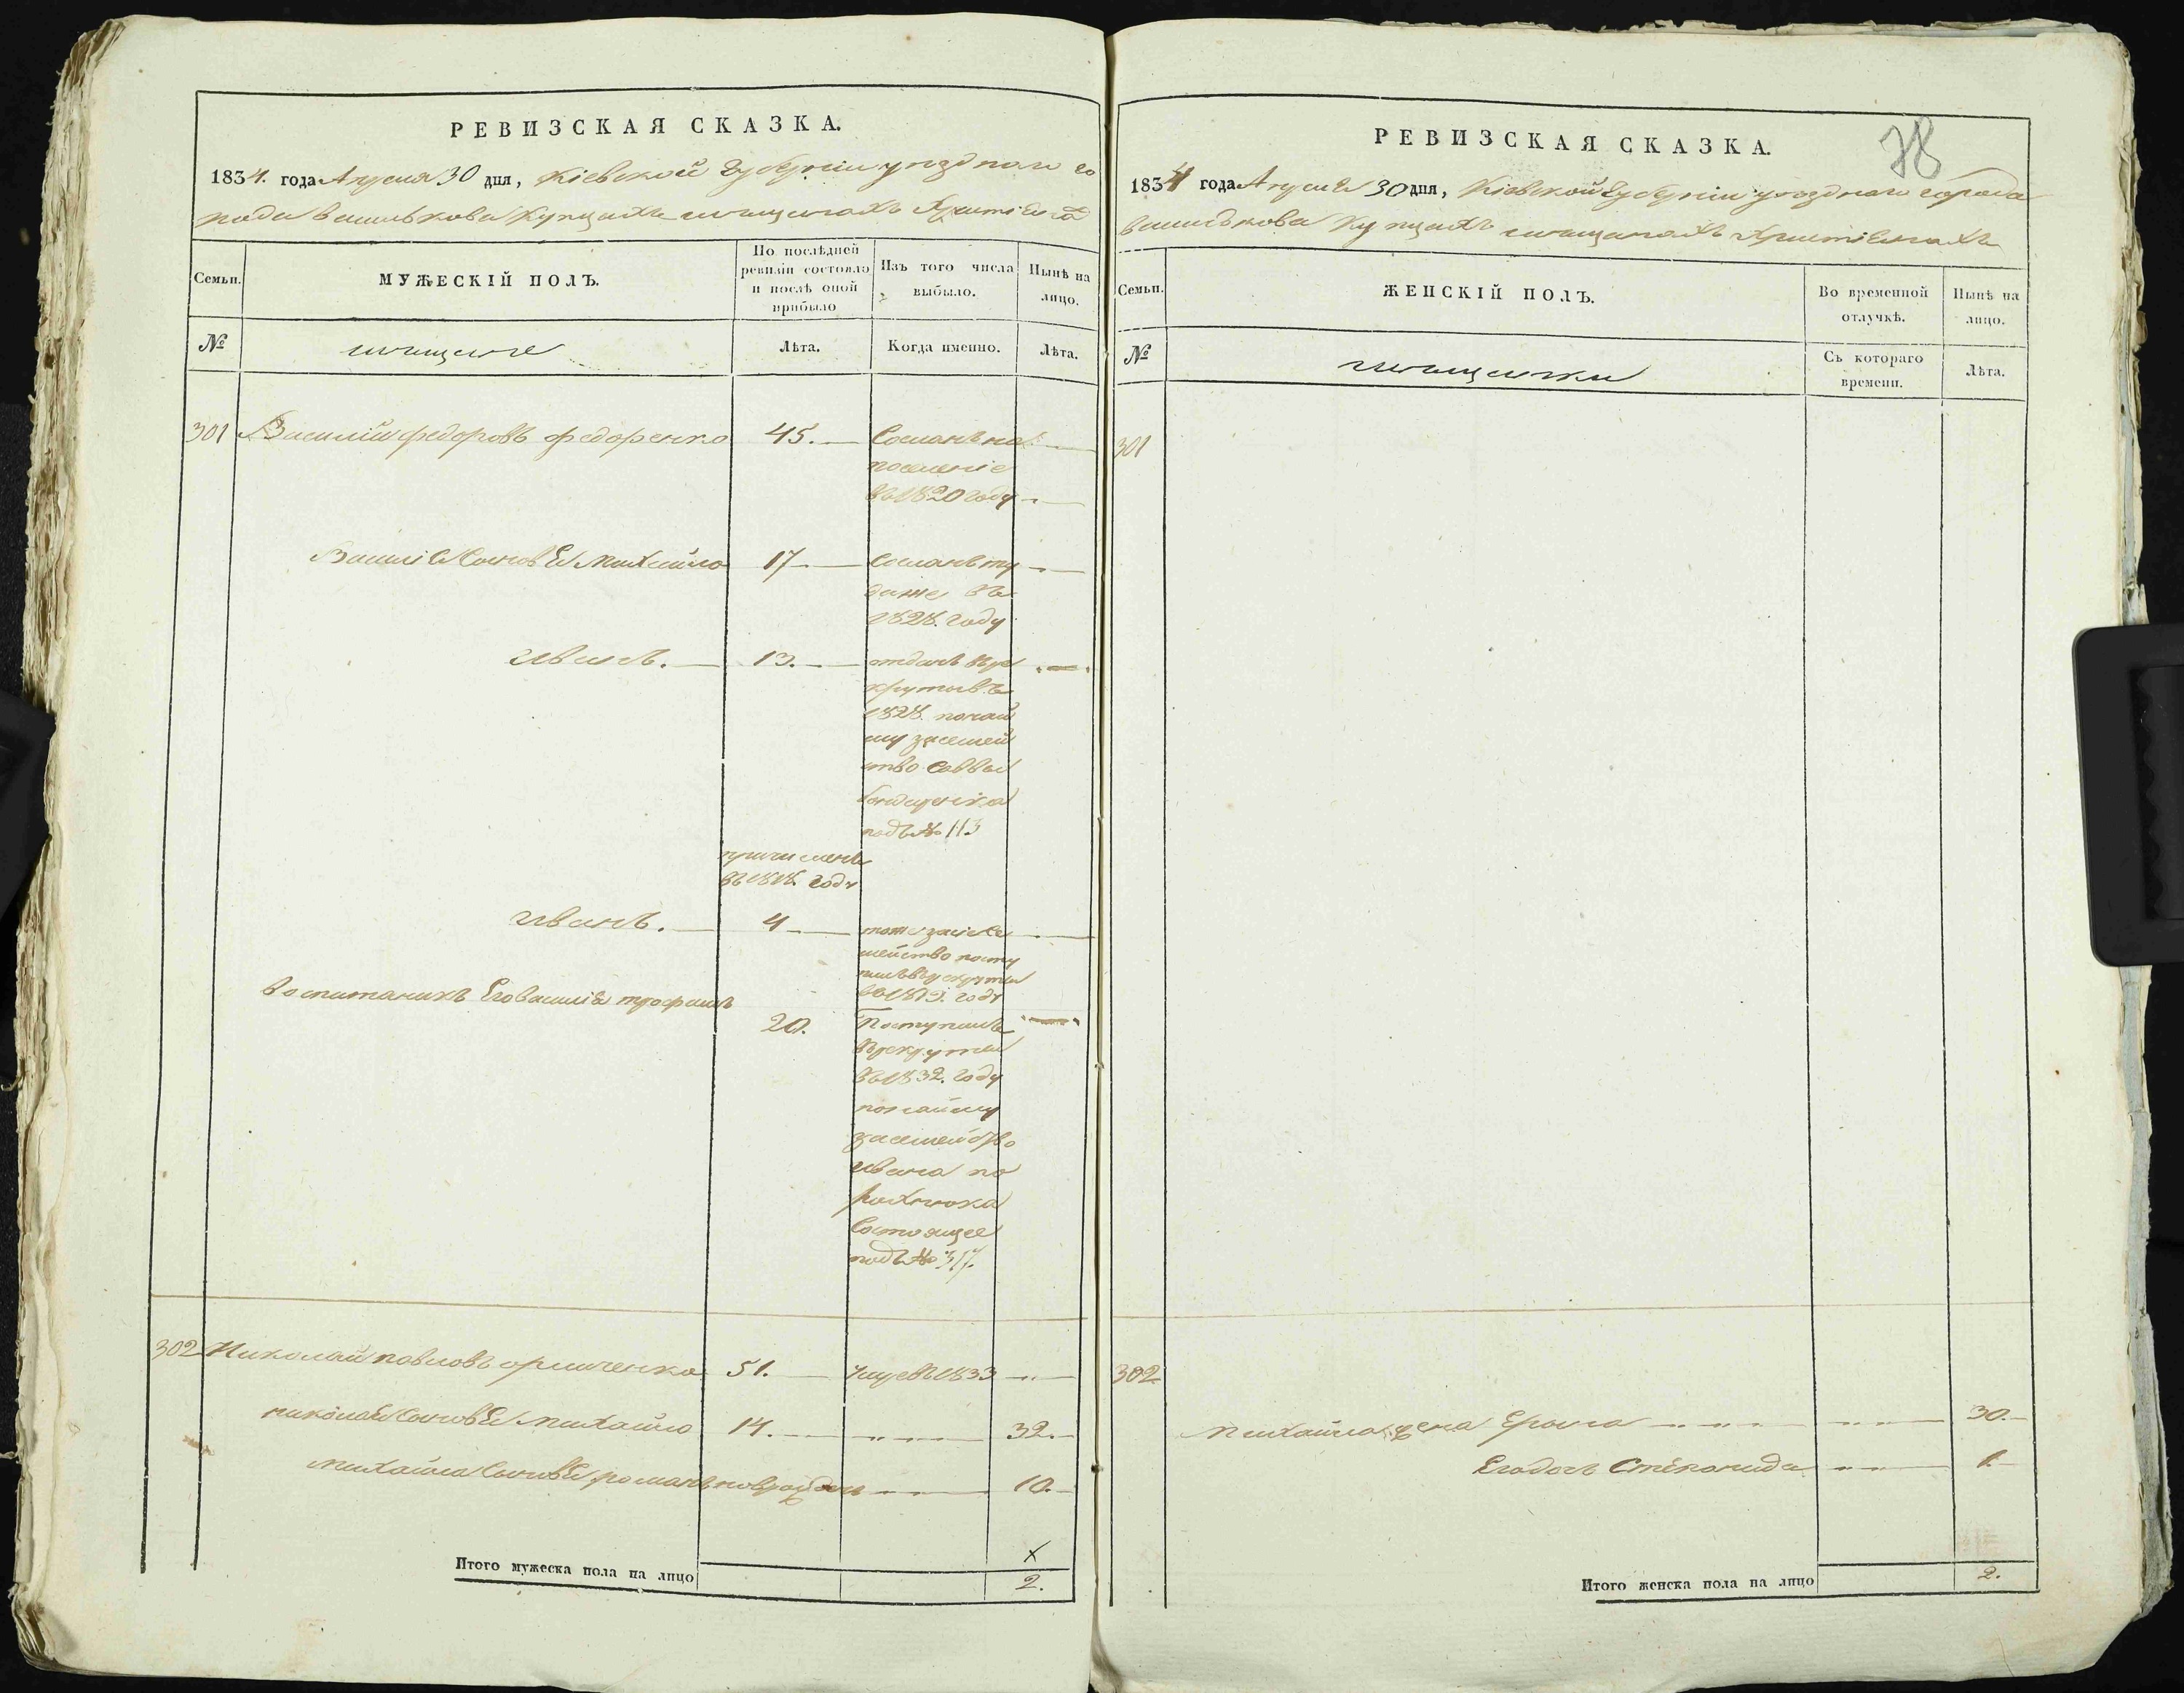 РЕВИЗСКАЯ СКАЗКА.
1834. года Апреля 30 дня, Кіевской Губерніи уезднаго го
рода Василькова Купцахъ мещанахъ Христіяна
Семьи.
МУЖЕСКІЙ ПОЛЪ.
По послѣдней
ревизіи состояло
и послѣ оной
прибыло
Изъ того числа
выбыло.
Нынѣ на
лицо.
№
мещане
Лѣта.
Когда именно.
Лѣта.
301 Василій Федоровъ Федоренко 45. Сосланъ на
поселеніе
въ 1820 году
Василія Сыновья Михайло 17 Сосланъ ту
даже въ
1828. году
Иванъ. 13. отданъ въ ре
круты въ
1828. понай
му за семей
ство Саввы
подъ № 113
причисленъ
въ 1818. году
Иванъ. 4
мейство посту
въ рекруты
году
Воспитаникъ Его Василія Трофимъ
20. Поступилъ
въ рекруты
въ 1832. году
понайму
за семейство
Ивана по
состоящее
подъ № 317.
302 Николай Павловъ 51. Умре въ 1833
Николая Сыновья Михайло 14. 32.
Михайла Сыновья Романъ новорожденъ 10.
Итого мужеска пола на лицо
2.
78
РЕВИЗСКАЯ СКАЗКА.
1834 года Апреля 30 дня, Кіевской Губерніи уезднаго города
Василькова Купцахъ мещанахъ Христіянахъ
Семьи.
ЖЕНСКІЙ ПОЛЪ.
Во временной
отлучкѣ.
Нынѣ на
лицо.
№
мещанки
Съ котораго
времени.
Лѣта.
301
302
Михайла жена 30.
Его дочь Степонида 1.
Итого женска пола на лицо 2.